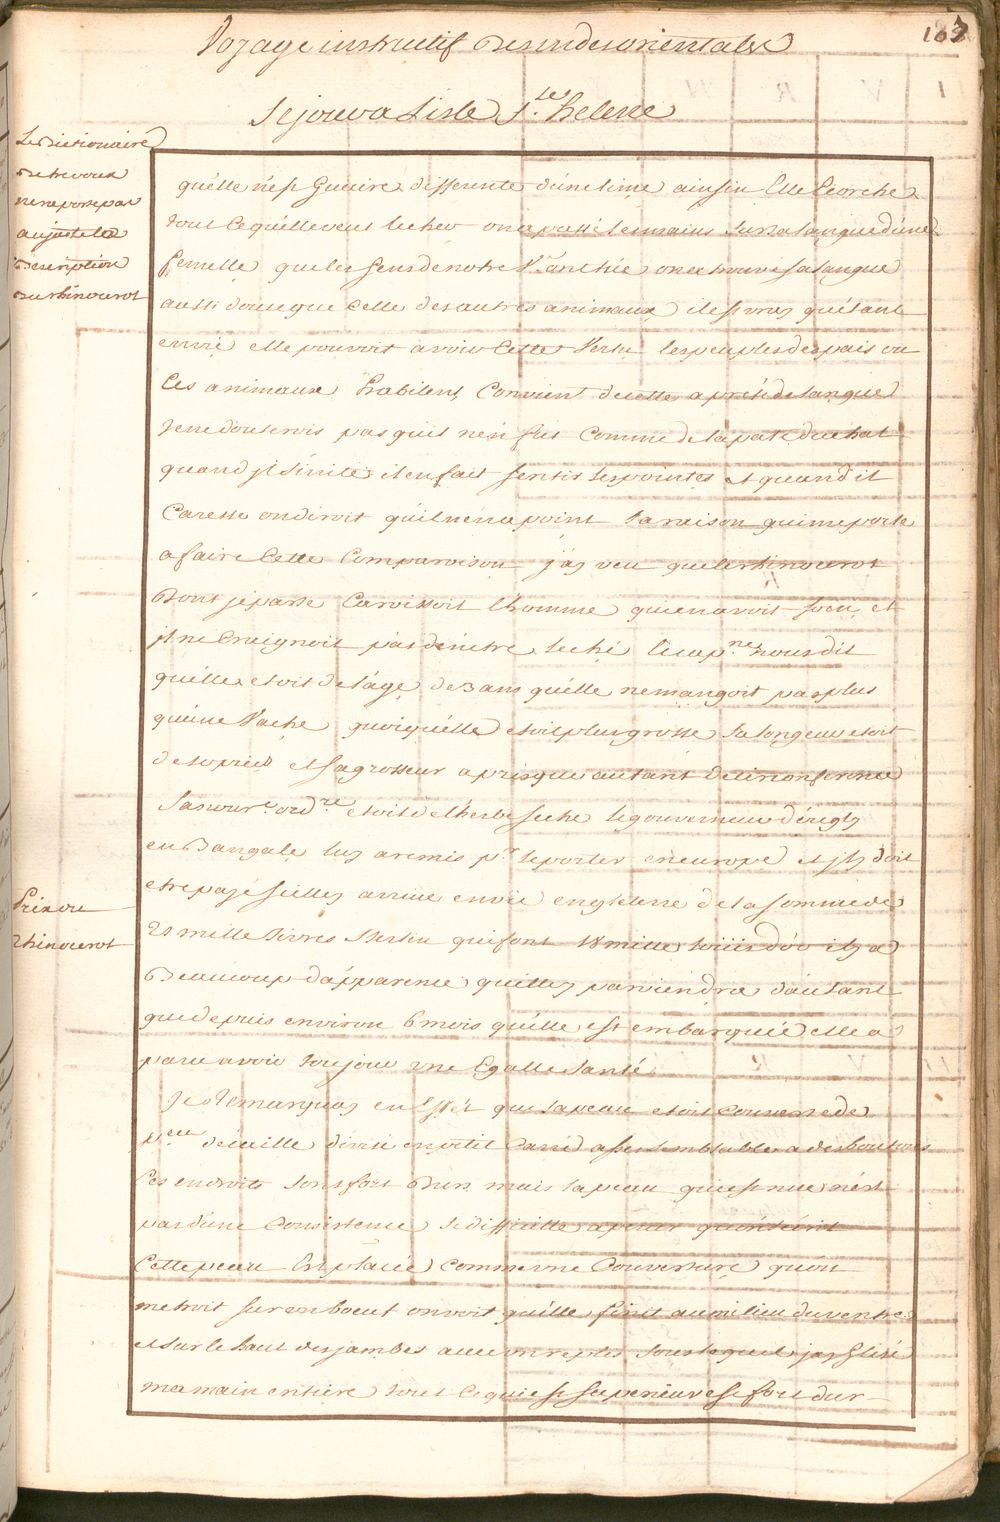 Voyage instructif des indes orientales
167
Sejour a Lisle S.te helene
Le Dictionaire
De trevoux
ne raporte pas
au juste la
Description
du rhinocerot
quélle n'est Gueire differente d'une lime ainsin Elle Ecorche
tout ce quélle veut lecher on a passé les mains sur la langue d'une
femelle que les gens de notre V.au ont tuée on a trouvé sa langue
aussi douce que celle des autres animaux il est vray quétant
en vie elle pouvoit avoir cette Vertu les peuples des pais ou
Ces animaux habitent Convient de cette apreté de langue
Je ne douterois pas quil n'en fut comme de la pate du chat
quand jl s'irite il en fait sentir les pointes et quand il
Caresse on diroit quil n'en a point la raison qui me porte
a faire Cette Comparoison j'ay veu que le rhinocerot
Dont je parle Caroissoit lhomme qui en avoit soin et
jl ne Craignoit pas d'en etre leché le cap.ne nous dit
quélle etoit de l'áge de 3 ans quélle ne mangoit pas plus
quúne Vache quoiquélle etoit plus grosse sa longeur etoit
de 10 pieds et sa grosseur a presque autant de circonference
Sa nour.e ord.re etoit de l'herbe seche le gouverneur d'Engl.
en Bangale luy a remis p.r le porter en europe et jl doit
etre payé si elle arrive en vie en gleterre de la somme de
Prix du
rhinocerot
20 mille Livres Sterlin qui font 18 mille Louis d'ór il y a
Beaucoup d'ápparence quelle y parviendra d'áutant
que depuis environ 6 mois quélle est embarquée elle a
paru avoir toujour une Egalle Santé
Je Remarquay en Effét que sa peau etoit Couverte de
p.eu d'écaille divisé en petit Carré assés semblable a des boutons
Ces endroits sont fort Durs mais la peau qui est nue n'ést
pas d'une Consistence si difficille a percer
Cette peau Est placée Comme une Couverture quon
metroit sur un boeuf on voit quélle finit au milieu du ventre
et sur le haut des jambes avec un replis sous lequel jay Glissé
ma main entiere tout ce qui est superieur est fort dur